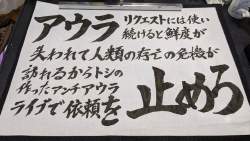 アウラ リクエストには使い
続けると鮮度が
失われて人類の存亡の危機が
訪れるからトシの
作ったマンチアウラ
ライブで依頼を
止めろ